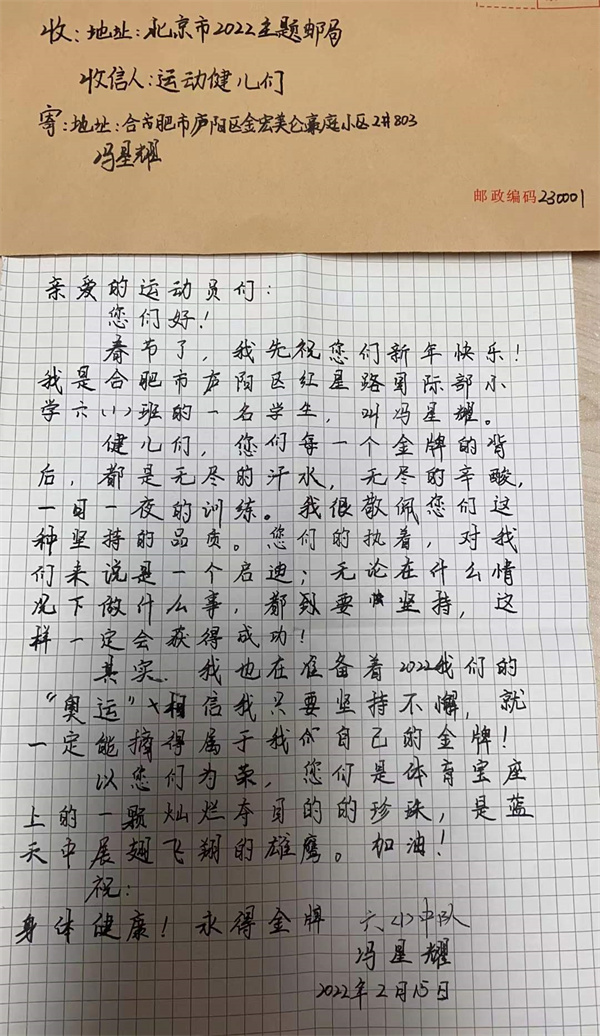 收：地址：北京市2022主题邮局
收信人：运动健儿们
寄：地址：合肥市庐阳区金宏美仑豪庭小区2#803
冯星耀
邮政编码230001
亲爱的运动员们：
您们好！
春节了，我先祝您们新年快乐！
我是合肥市庐阳区红星路国际部小
学六(1)班的一名学生，叫冯星耀。
健儿们，您们每一个金牌的背
后，都是无尽的汗水，无尽的辛酸，
一日一夜的训练。我很敬佩您们这
种坚持的品质。您们的执着，对我
们来说是一个启迪；无论在什么情
况下做什么事，都到要坚持，这
样一定会获得成功！
其实．我也在准备着2022我们的
“奥运”，相信我只要坚持不懈，就
一定能摘得属于我们自己的金牌！
以您们为荣，您们是体育宝座
上的一颗灿烂夺目的的珍珠，是蓝
天中展翅飞翔的雄鹰。加油！
祝：
身体健康！永得金牌
六(1)中队
冯星耀
2022年2月15日